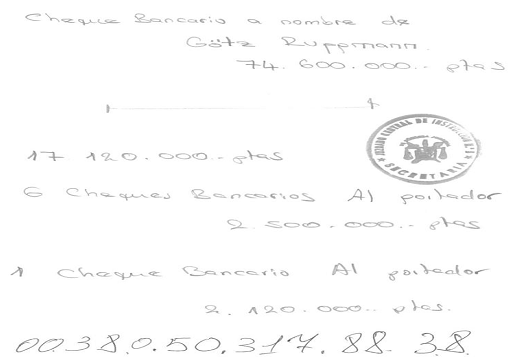 Cheque Bancario a nombre de
Götz Ruppmann.
74.600.000.- ptas
17 120.000.- ptas
JUZGADO CENTRAL DE INSTRUCCION
SECRETARIA
6 Cheques Bancarios Al portador
2.500.000.- ptas
1 Cheque Bancario Al portador
2.120.000.- ptas.
0038.0.50.317.88.38.